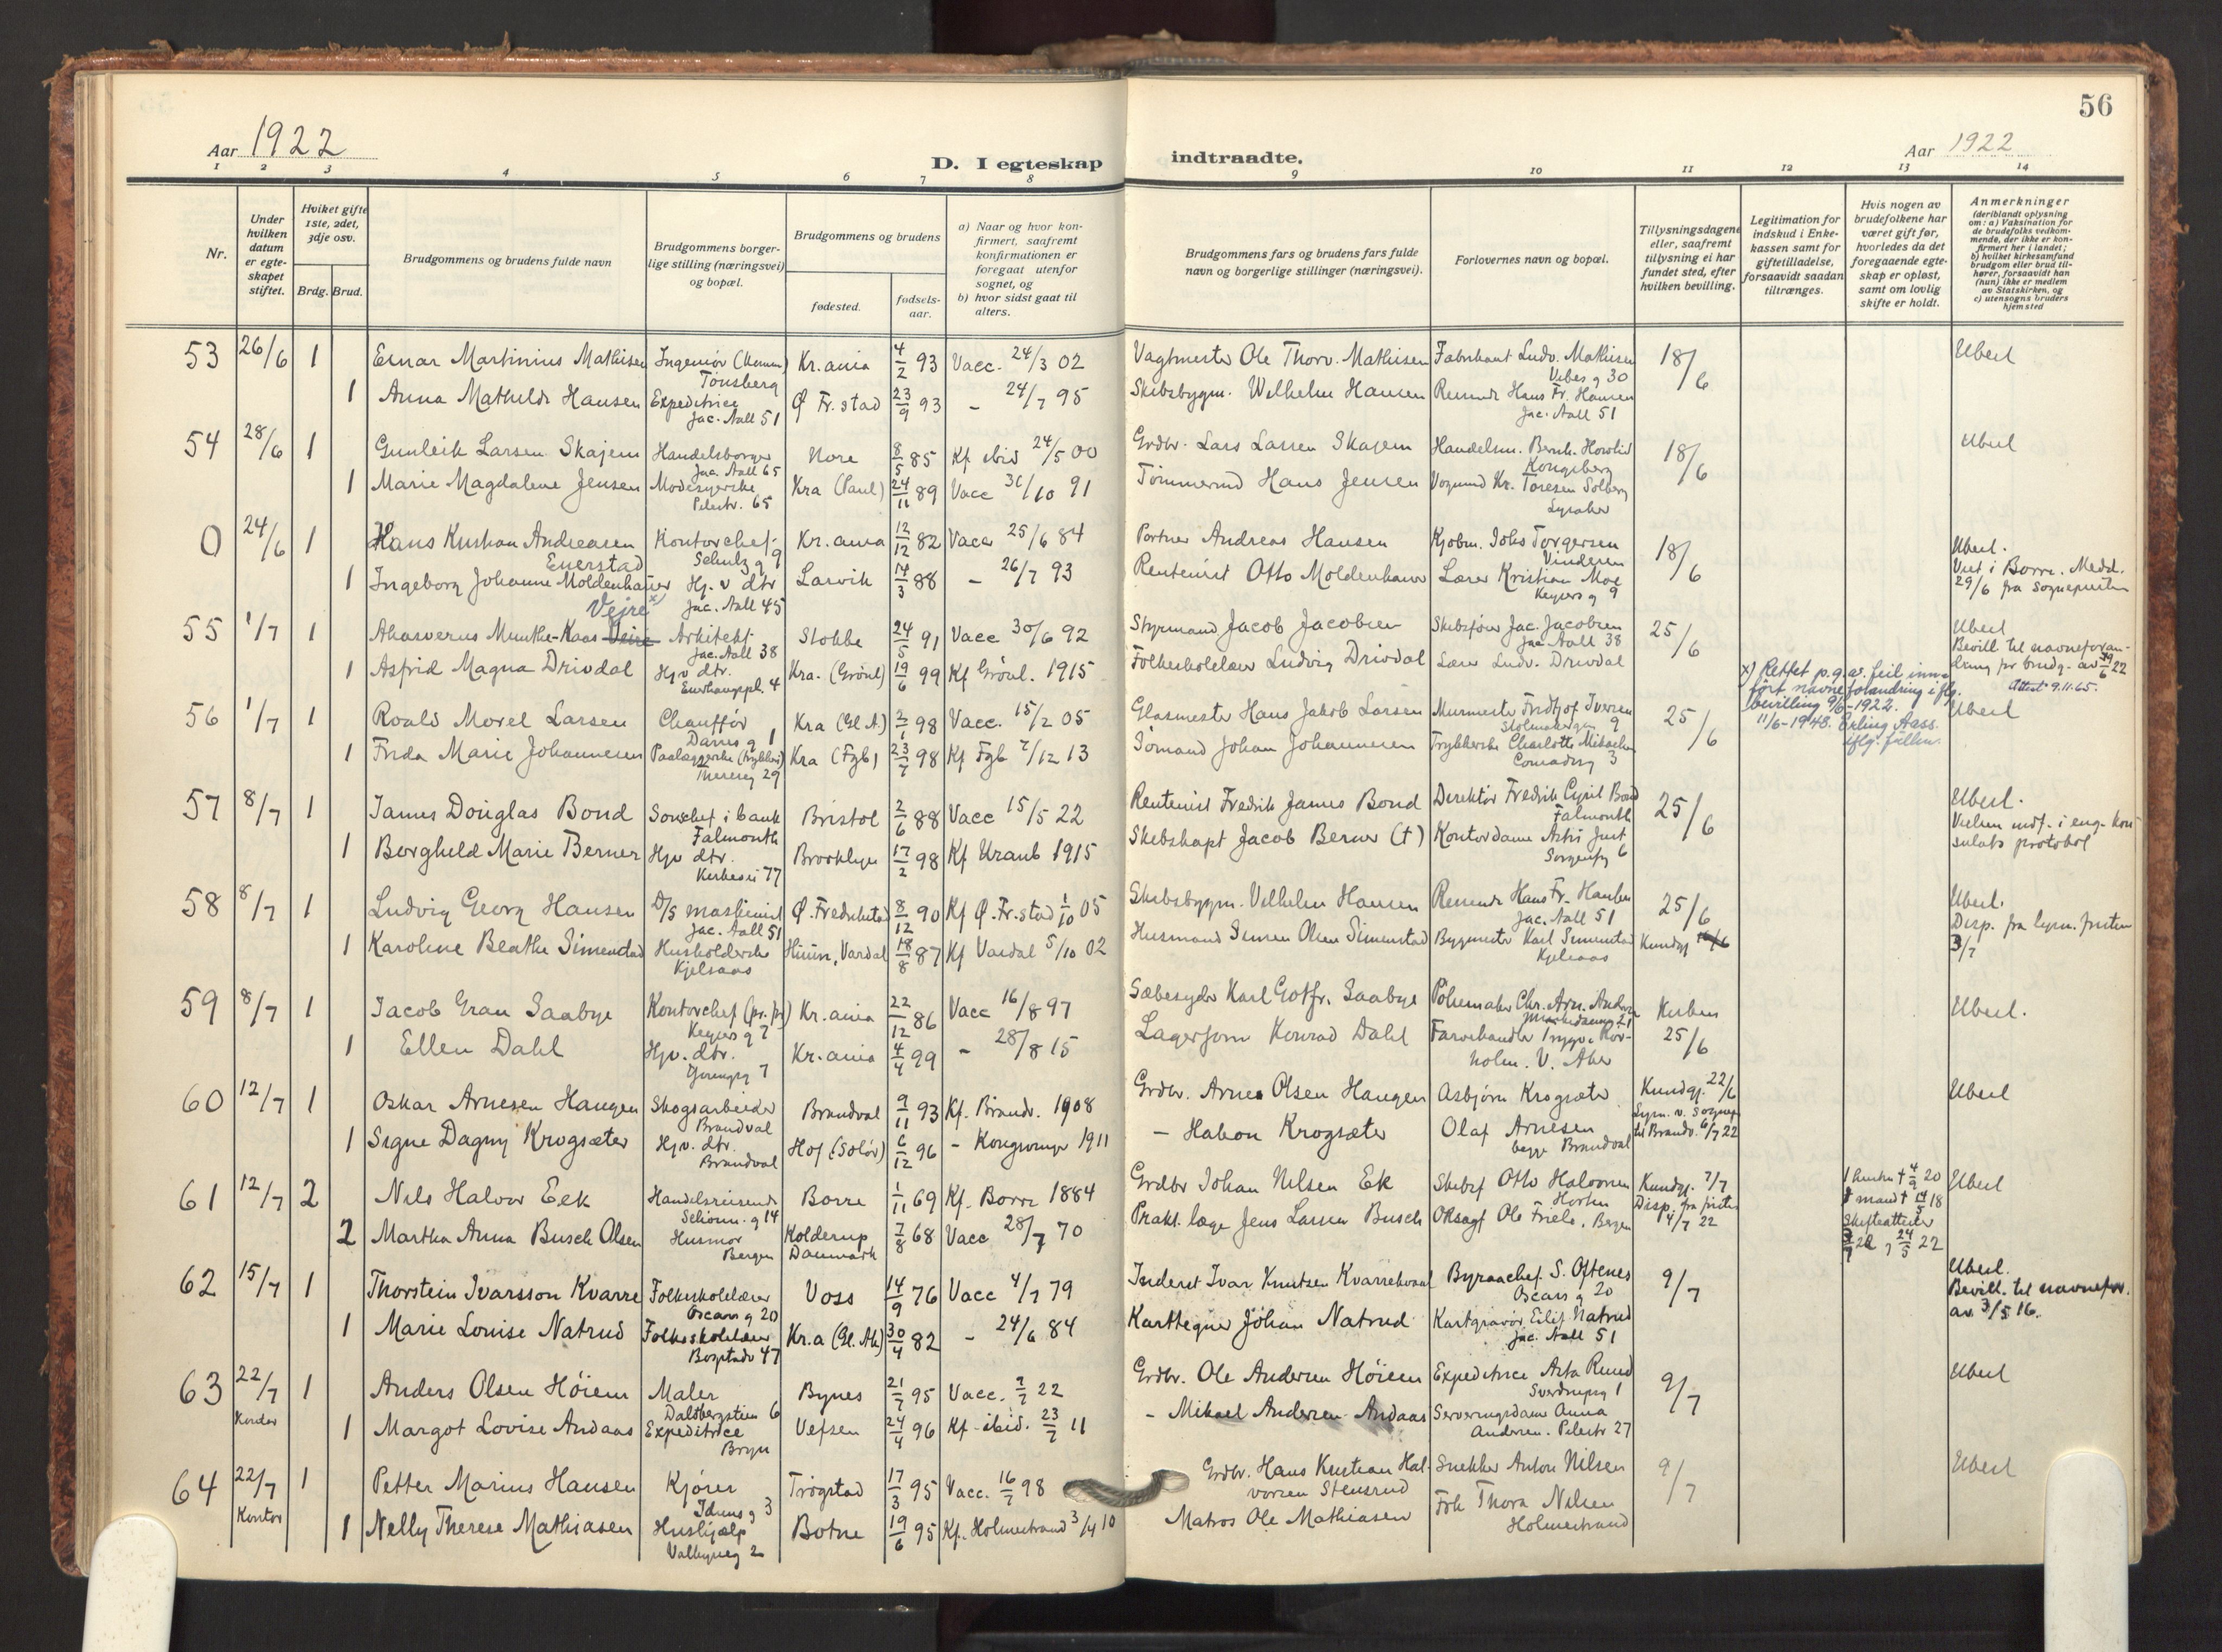 56
Aar 1922
Aar 1922
D. I egteskap indtraadte.
1 2 3 4 5 6 7 8 9 10 11 12 13 14
Nr.
Under hvilken datum er egteskapet stiftet.
Hvilket gifte 1ste, 2det, 3dje osv.
Brdg. Brud.
Brudgommens og brudens fulde navn
Brudgommens borgerlige stilling (næringsvei) og bopæl.
Brudgommens og brudens
fødested.
fødselsaar.
a) Naar og hvor konfirmert, saafremt konfirmationen er foregaat utenfor sognet, og
b) hvor sidst gaat til alters.
Brudgommens fars og brudens fars fulde navn og borgerlige stillinger (næringsvei).
Forlovernes navn og bopæl.
Tillysningsdagene eller, saafremt tillysning ei har fundet sted, efter hvilken bevilling.
Legitimation for indskud i Enkekassen samt for giftetilladelse, forsaavidt saadan tiltrænges.
Hvis nogen av brudefolkene har været gift før, hvorledes da det foregaaende egteskap er opløst, samt om lovlig skifte er holdt.
Anmerkninger
(deriblandt oplysning om: a) Vaksination for de brudefolks vedkommende, der ikke er konfirmert her i landet; b) hvilket kirkesamfund brudgom eller brud tilhører, forsaavidt han (hun) ikke er medlem av Statskirken, og c) utensogns bruders hjemsted
53 26/6 1 Einar Martinius Mathisen Ingeniør (Kemm) Tønsberg Kr.ania 4/2 93 Vacc. 24/3 02 Vagtmester Ole Thorv. Mathisen Fabrikant Ludv. Mathisen Vibes g 30 18/6 Uberl
1 Anna Mathilde Hansen Expeditrice Jac. Aall 51 Ø Fr.stad 23/9 93 - 24/7 95 Skibsbygm. Wilhelm Hansen Reisende Hans Fr. Hansen Jac. Aall 51
54 28/6 1 Gunleik Larsen Skajem Handelsborger Jac. Aall 65 Nore 8/5 85 Kf ibid 24/5 00 Grdbr. Lars Larsen Skajem Handelsm. Bernh. Kongsberg 18/6 Uberl
1 Marie Magdalene Jensen Modesyerske Pilestr. 65 Kra (Paul) 24/11 89 Vacc 31/10 91 Tømmermd Hans Jensen Vognmd Kr. Toresen Solberg Lysaker
0 24/6 1 Hans Kristian Andreasen Enerstad Kontorchef Schulz g 9 Kr.ania 12/12 82 Vacc 25/6 84 Portner Andreas Hansen Kjøbm. Johs Torgersen Vinderen 18/6 Uberl. Viet i Borre. Medd. 29/6 fra Sognepresten
1 Ingeborg Johanne Moldenhauer Hj. v dtr Jac. Aall 45 Larvik 14/3 88 - 26/7 93 Rentenist Otto Moldenhauer Lærer Kristian Moe Keysers g 9
Vejre x)
55 1/7 1 Ahasverus Munthe-Kaas Veire Arkitekt Jac. Aall 38 Stokke 24/5 91 Vacc 30/6 92 Styrmand Jacob Jacobsen Skibsfører Jac. Jacobsen Jac Aall 38 25/6 Uberl Bevill. til navneforandring for brudg. av 22
1 Astrid Magna Drivdal Hjv dtr. 4 Kra. (Grønl) 19/6 99 Kf Grønl. 1915 Folkeskolelærer Ludvig Drivdal Lærer Ludv. Drivdal Attest 9.11.65.
x) Rettet p.g.a. feil innført navneforandring iflg. bevilling 9/6-1922. 11/6-1948. Erling Aass.
56 1/7 1 Roald Morel Larsen Chauffør Darres g 1 Kra (Gl A.) 98 Vacc. 15/2 05 Glasmester Hans Jakob Larsen Murmester Fridtjof Iversen 9 25/6 Uberl
1 Frida Marie Johannesen Paalæggerske (trykkeri) 29 Kra (Fgb) 23/7 98 Kf Fgb 7/12 13 Sømand Johan Johannesen Trykkerske Charlotte Mikaelsen Conradisg 3
57 8/7 1 James Douglas Bond Souschef i bank Falmouth Bristol 2/6 88 Vacc 15/5 22 Rentenist Fredrik James Bond Direktør Fredrik Cyril Bond Falmouth 25/6 Uberl. Vielsen indf. i eng. konsulats protokol
1 Borghild Marie Berner Hjv dtr. Kirkevei 77 Brooklyn 17/2 98 Kf Uranb 1915 Skibskapt Jacob Berner (†) Kontordame Astri Just Sorgenfrg 6
58 8/7 1 Ludvig Georg Hansen D/S maskinist Jac. Aall 51 Ø. Fredrikstad 8/12 90 Kf Ø. Fr.stad 1/10 05 Skibsbygm. Vilhelm Hansen Reisende Hans Fr. Hansen Jac. Aall 51 25/6 Uberl. Disp. fra lysn. fristen 3/7
1 Karoline Beathe Simenstad Husholderske Kjelsaas Hunn, Vardal 18/8 87 Kf Vardal 5/10 02 Husmand Simen Olsen Simenstad Bygmester Karl Simenstad Kjelsaas Kundgj
59 8/7 1 Jacob Grau Saabye Kontorchef Keysers g 7 Kr.ania 22/12 86 Vacc 16/8 97 Sæbesyder Karl Gotfr. Saabye Pølsemaker Chr. Arn. 21 Kirken 25/6 Uberl.
1 Ellen Dahl Hjv. dtr. 7 Kr.ania 4/4 99 - 28/8 15 Lagerform Konrad Dahl Farvehandler Trygve Korholm. V. Aker
60 12/7 1 Oskar Arnesen Haugen Skogsarbeider Brandval Brandval 9/11 93 Kf. Brandv. 1908 Grdbr. Arne Olsen Haugen Asbjørn Krogsæter Kundgj. 22/6 Uberl
1 Signe Dagny Krogsæter Hjv. dtr. Brandval Hof (Solør) 6/12 96 - Kongsvinger 1911 - Hakon Krogsæter Olaf Arnesen begge Brandval Lysn. v. Sognepr til Brandv. 6/7 22
61 12/7 2 Nils Halvor Eek Handelsreisende Schønn. g 14 Borre 1/11 69 Kf. Borre 1884 Grdbr Johan Nilsen Ek Skibsf Otto Halvorsen Horten Kundgj. 7/7 Uberl
2 Martha Anna Busch Olsen Husmor Bergen Kolderup Danmark 7/8 68 Vacc 28/7 70 Prakt. læge Jens Larsen Busch Oksagf Ole Friele, Bergen Disp. fra fristen 4/7 22 Skifteattester
62 15/7 1 Thorstein Ivarsson Kvarre Folkeskolelærer Oscars g 20 Voss 14/9 76 Vacc 4/7 79 Inderst Ivar Knutsen Kvarrekvaal Byraachef S. Oftenes Oscars g 20 9/7 Uberl. Bevill. til navnefor. av 3/5 16.
1 Marie Louise Natrud Folkeskolelærer Bogstadv 47 Kr.a (Gl. Ak) 30/4 82 - 24/6 84 Karttegner Johan Natrud Kartgravør Eilif Natrud Jac. Aall 51
63 22/7 Kontor 1 Anders Olsen Høiem Maler Dalsbergstien 6 Bynes 21/7 95 Vacc. 22 Grdbr. Ole Andersen Høiem Expeditrice Asta Ruud Sverdrupsg 1 9/7 Uberl
1 Margot Lovise Andaas Expeditrice Bryn Vefsen 24/4 96 Kf ibid. 23/7 11 - Mikael Andersen Andaas Serveringsdame Anna Andersen. Pilestr 27
64 22/7 Kontor 1 Petter Marius Hansen Kjører Iduns g 3 Trøgstad 17/3 95 Vacc. 16/7 98 Grdbr. Hans Kristian Halvorsen Stensrud Snekker Anton Nilsen 9/7 Uberl
1 Nelly Therese Mathiasen Hushjælp Valkyrieg 2 Botne 19/6 95 Kf. Holmestrand 3/4 10 Matros Ole Mathiasen Frk Thora Nilsen Holmestrand